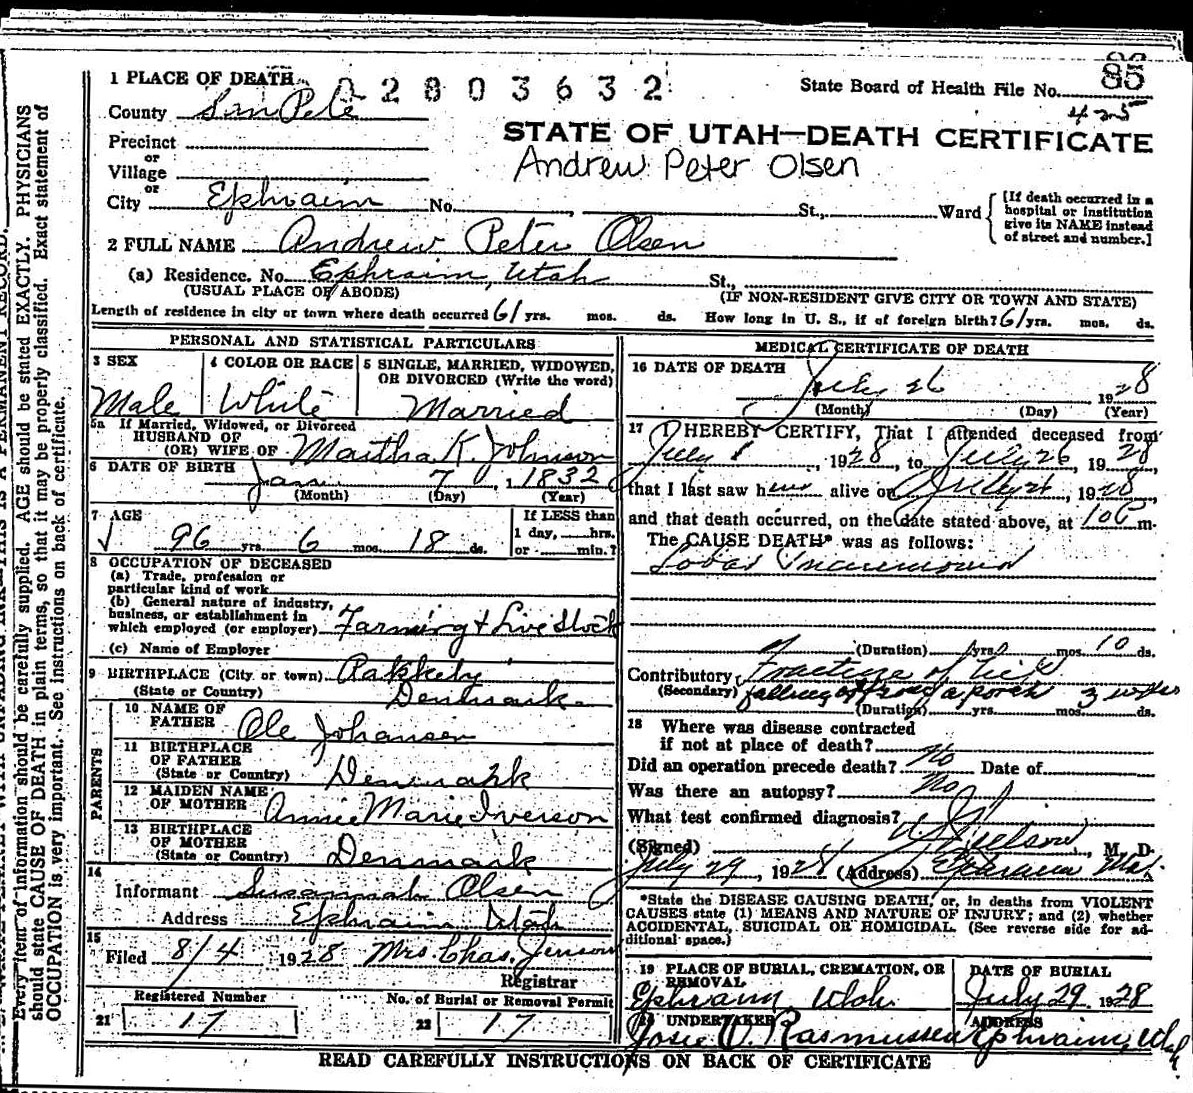 85
1 PLACE OF DEATH 02803632 State Board of Health File No.
County SanPete 425
Precinct
or
Village
or
STATE OF UTAH—DEATH CERTIFICATE
Andrew Peter Olsen
City Ephraim No. St., Ward
[If death occurred in a
hospital or institution
give its NAME instead
of street and number.]
2 FULL NAME Andrew Peter Olsen
(a) Residence. No. Ephraim, Utah St.,
(USUAL PLACE OF ABODE) (IF NON-RESIDENT GIVE CITY OR TOWN AND STATE)
Length of residence in city or town where death occurred 61 yrs. mos. ds. How long in U. S., if of foreign birth? 61 yrs. mos. ds.
PERSONAL AND STATISTICAL PARTICULARS
3 SEX 4 COLOR OR RACE 5 SINGLE, MARRIED, WIDOWED,
OR DIVORCED (Write the word)
Male White Married
5a If Married, Widowed, or Divorced
HUSBAND OF
(OR) WIFE OF Martha K. Johnson
6 DATE OF BIRTH Jan 7, 1832
(Month) (Day) (Year)
7 AGE If LESS than
1 day, hrs.
96 yrs. 6 mos. 18 ds. or min.?
8 OCCUPATION OF DECEASED
(a) Trade, profession or
particular kind of work
(b) General nature of industry,
business, or establishment in
which employed (or employer) Farming & Live Stock
(c) Name of Employer
9 BIRTHPLACE (City or town) Rakkeby
(State or Country) Denmark
PARENTS
10 NAME OF
FATHER Ole Johansen
11 BIRTHPLACE
OF FATHER
(State or Country) Denmark
12 MAIDEN NAME
OF MOTHER Annie Marie Iverson
13 BIRTHPLACE
OF MOTHER
(State or Country) Denmark
14
Informant Susannah Olsen
Address Ephraim Utah
15
Filed 8/4 1928 Mrs. Chas. Jenson
Registrar
Registered Number No. of Burial or Removal Permit
21 17 22 17
MEDICAL CERTIFICATE OF DEATH
16 DATE OF DEATH July 26 1928
(Month) (Day) (Year)
17 I HEREBY CERTIFY, That I attended deceased from
July 1, 1928, to July 26, 1928,
that I last saw h alive on July 26, 1928,
and that death occurred, on the date stated above, at m.
The CAUSE DEATH* was as follows:
Lobar Pneumonia
(Duration) yrs. mos. 10 ds.
Contributory Fracture of
(Secondary) falling off from a porch 3 weeks
(Duration) yrs. mos. ds.
18 Where was disease contracted
if not at place of death?
Did an operation precede death? No Date of
Was there an autopsy? No
What test confirmed diagnosis?
(Signed) Nielson, M. D.
July 29, 1928 (Address) Ephraim Utah
*State the DISEASE CAUSING DEATH, or, in deaths from VIOLENT
CAUSES state (1) MEANS AND NATURE OF INJURY; and (2) whether
ACCIDENTAL, SUICIDAL OR HOMICIDAL. (See reverse side for ad-
ditional space.)
19 PLACE OF BURIAL, CREMATION, OR
REMOVAL
DATE OF BURIAL
Ephraim Utah July 29 1928
20 UNDERTAKER ADDRESS
Rasmussen Ephraim, Utah
READ CAREFULLY INSTRUCTIONS ON BACK OF CERTIFICATE
Every item of information should be carefully supplied. AGE should be stated EXACTLY. PHYSICIANS
should state CAUSE OF DEATH in plain terms, so that it may be properly classified. Exact statement of
OCCUPATION is very important. See instructions on back of certificate.